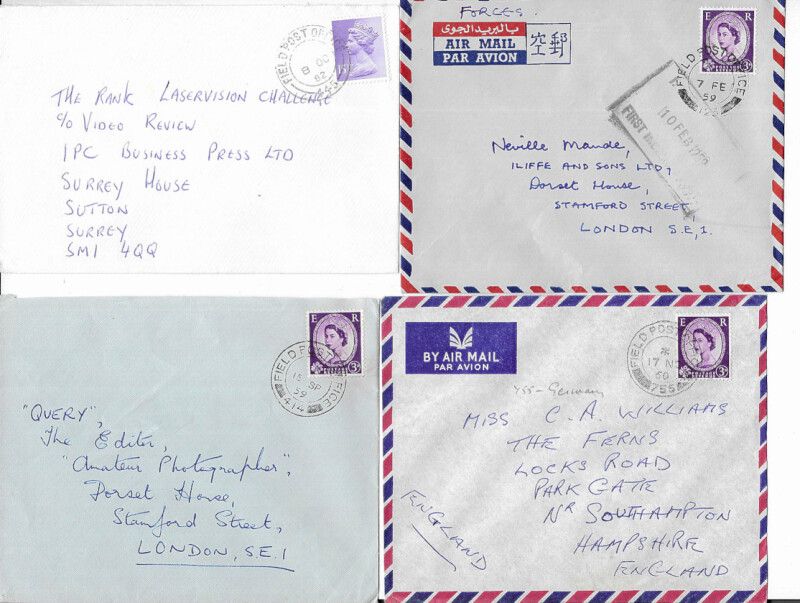 FIELD POST OFFICE
8 OC
82
THE RANK LASERVISION CHALLENGE
c/o VIDEO REVIEW
IPC BUSINESS PRESS LTD
SURREY HOUSE
SUTTON
SURREY
SM1 4QQ
FORCES
بالبريد الجوي
AIR MAIL
PAR AVION
空郵
E R
3D
FIELD POST OFFICE
7 FE
59
10 FEB 1959
FIRST
Neville Maude,
ILIFFE AND SONS LTD,
Dorset House,
STAMFORD STREET,
LONDON S.E,1.
E R
3D
FIELD POST OFFICE
SP
59
414
"QUERY",
The Editor,
"Amateur Photographer",
Dorset House,
Stamford Street,
LONDON, S.E.1
BY AIR MAIL
PAR AVION
E R
3D
FIELD POST
17 NO
60
755
755 - Germany
MISS C. A. WILLIAMS
THE FERNS
LOCKS ROAD
PARK GATE
NR SOUTHAMPTON
HAMPSHIRE
ENGLAND
ENGLAND